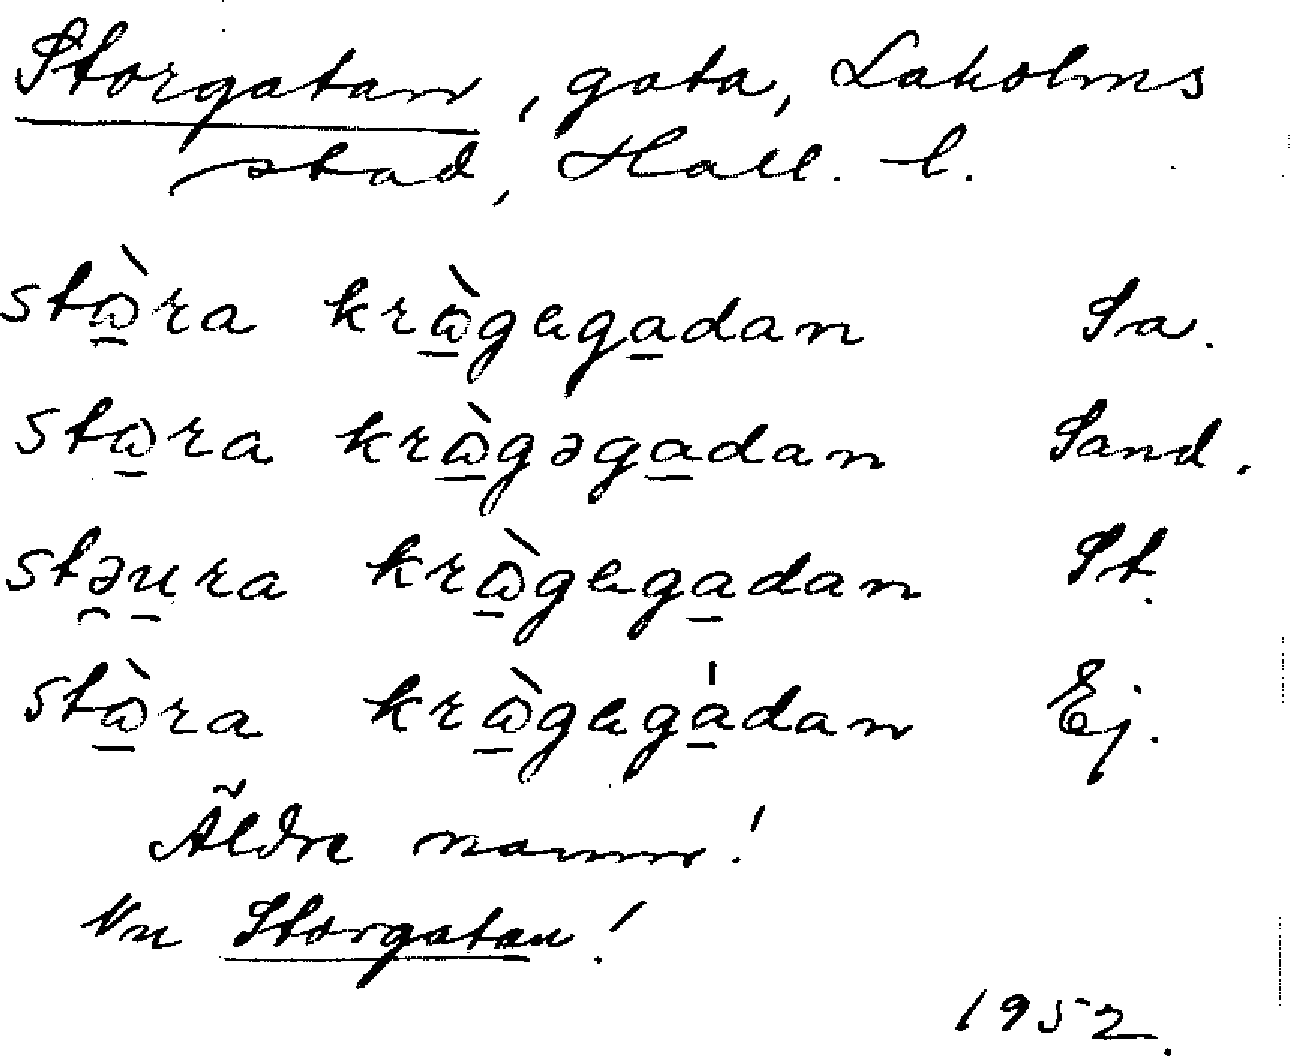 Storgatan, gata, Laholms
stad, Hall. l.
stὼ̲ra krὼ̲gega̲dan Sa.
stω̲ra krὼ̲gəga̲dan Sand.
stə̯u̲ra krὼ̲gega̲dan St.
stὼ̲ra krὼ̲gega̲̍dan Ej.
Äldre namn!
Nu Storgatan!
1952.